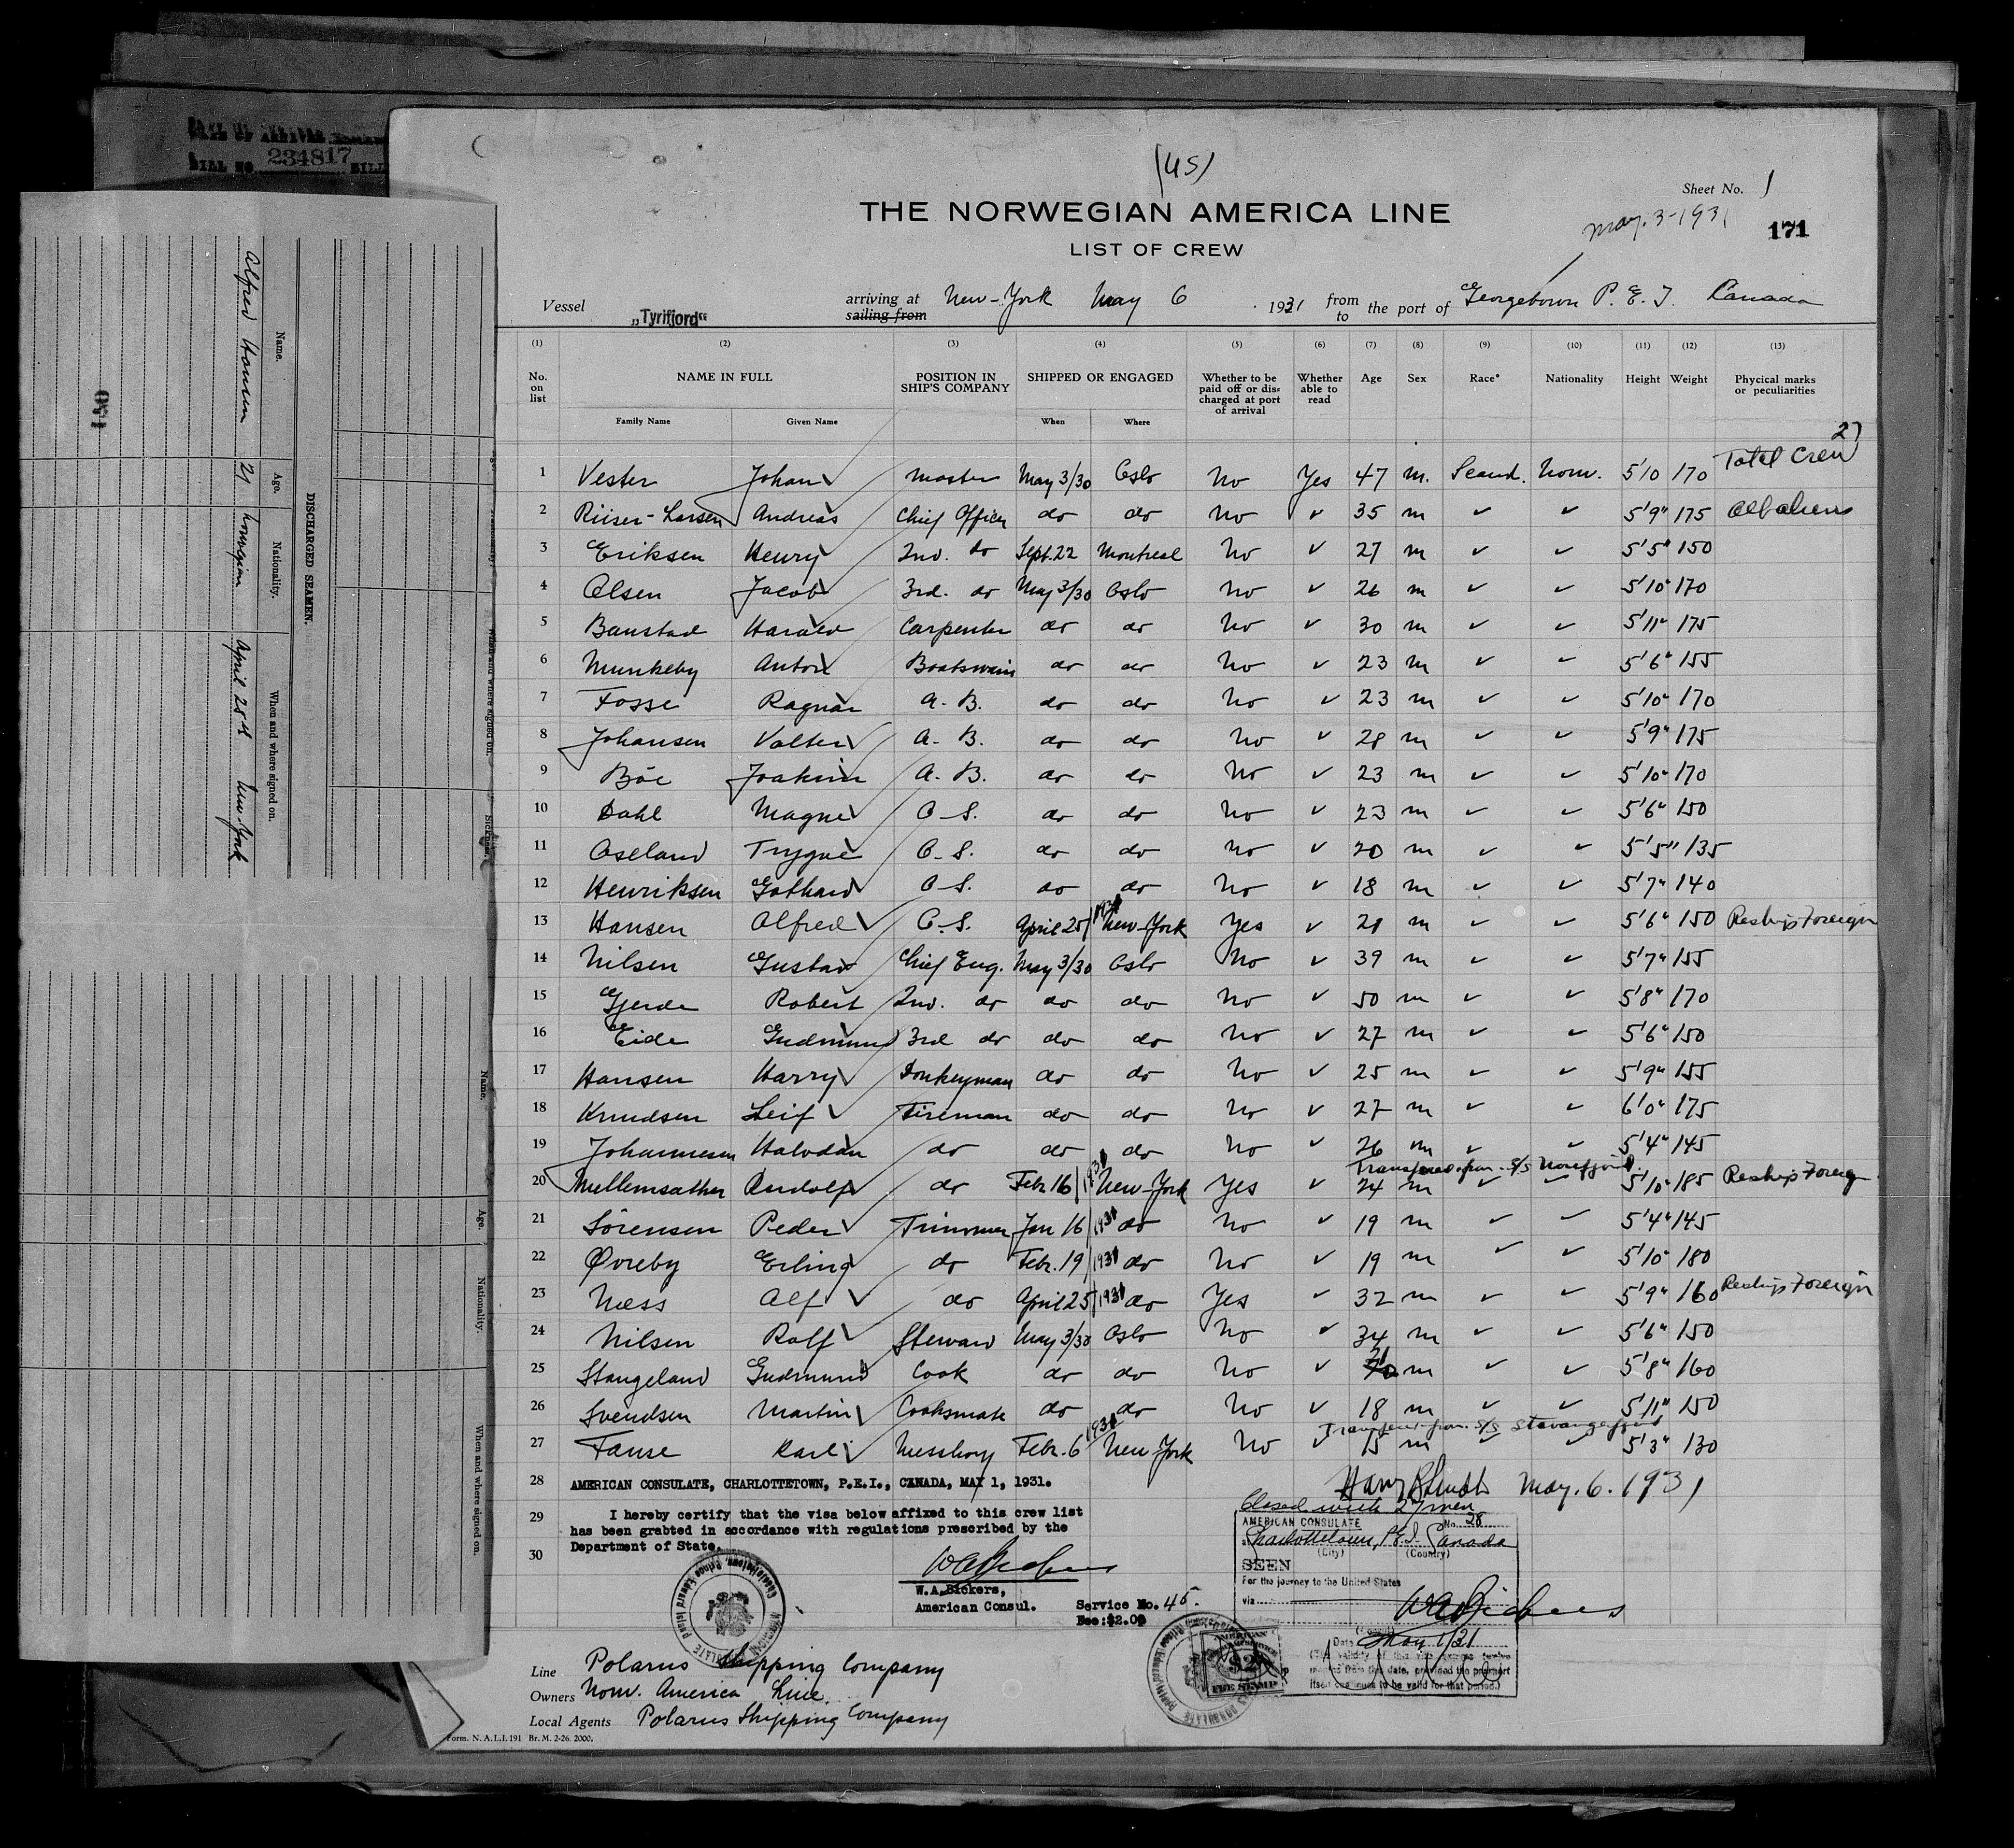 DATE OF ARRIVAL
BILL NO. 234817 BILL
DISCHARGED SEAMEN.
Name. Age. Nationality. When and where signed on.
Alfred Hansen 21 Norwegian April 25th New York
180
Name. Age. Nationality. When and where signed on.
(45)
Sheet No. 1
THE NORWEGIAN AMERICA LINE
May. 3-1931
171
LIST OF CREW
Vessel „Tyrifjord“ arriving at sailing from New-York May 6 1931 from to the port of Georgetown P. E. I. Canada
(1) (2) (3) (4) (5) (6) (7) (8) (9) (10) (11) (12) (13)
No. on list NAME IN FULL POSITION IN SHIP'S COMPANY SHIPPED OR ENGAGED Whether to be paid off or dis-charged at port of arrival Whether able to read Age Sex Race* Nationality Height Weight Phycical marks or peculiarities
Family Name Given Name When Where
27
Total Crew
1 Vester Johan Master May 3/30 Oslo No Yes 47 m. Scand. Norw. 5'10 170
2 Riiser-Larsen Andreas Chief Officer do do No ✓ 35 m ✓ ✓ 5'9" 175 All aliens
3 Eriksen Henry 2nd. do Sept. 22 Montreal No ✓ 27 m ✓ ✓ 5'5" 150
4 Olsen Jacob 3rd. do May 3/30 Oslo No ✓ 26 m ✓ ✓ 5'10" 170
5 Banstad Harald Carpenter do do No ✓ 30 m ✓ ✓ 5'11" 175
6 Munkeby Anton Boatswain do do No ✓ 23 m ✓ ✓ 5'6" 155
7 Fosse Ragnar A. B. do do No ✓ 23 m ✓ ✓ 5'10" 170
8 Johansen Valter A. B. do do No ✓ 28 m ✓ ✓ 5'9" 175
9 Böe Joakim A. B. do do No ✓ 23 m ✓ ✓ 5'10" 170
10 Dahl Magne O. S. do do No ✓ 23 m ✓ ✓ 5'6" 150
11 Aseland Trygve O. S. do do No ✓ 20 m ✓ ✓ 5'5" 135
12 Henriksen Gothard O. S. do do No ✓ 18 m ✓ ✓ 5'7" 140
13 Hansen Alfred O. S. April 25/1931 New-York Yes ✓ 21 m ✓ ✓ 5'6" 150 Reship Foreign
14 Nilsen Gustav Chief Eng. May 3/30 Oslo No ✓ 39 m ✓ ✓ 5'7" 155
15 Gjerde Robert 2nd. do do do No ✓ 50 m ✓ ✓ 5'8" 170
16 Eide Gudmund 3rd do do do No ✓ 27 m ✓ ✓ 5'6" 150
17 Hansen Harry Donkeyman do do No ✓ 25 m ✓ ✓ 5'9" 155
18 Knudsen Leif Fireman do do No ✓ 27 m ✓ ✓ 6'0" 175
19 Johannesen Halvdan do do do No ✓ 26 m ✓ ✓ 5'4" 145
Transfered from S/S Norefjord.
20 Mellemsæther Rudolf do Febr. 16/1931 New-York Yes ✓ 24 m ✓ ✓ 5'10" 185 Reship Foreign
21 Sörensen Peder Trimmer Jan 16/1931 do No ✓ 19 m ✓ ✓ 5'4" 145
22 Øvreby Erling do Febr. 19/1931 do No ✓ 19 m ✓ ✓ 5'10" 180
23 Næss Alf do April 25/1931 do Yes ✓ 32 m ✓ ✓ 5'9" 160 Reship Foreign
24 Nilsen Rolf Steward May 3/30 Oslo No ✓ 34 m ✓ ✓ 5'6" 150
25 Stangeland Gudmund Cook do do No ✓ m ✓ ✓ 5'8" 160
26 Svendsen Martin Cooksmate do do No ✓ 18 m ✓ ✓ 5'11" 150
Transfered from S/S Stavangerfjord
27 Fause Karl Messboy Febr. 6 1931 New-York No ✓ 15 m ✓ ✓ 5'3" 130
28 AMERICAN CONSULATE, CHARLOTTETOWN, P.E.I., CANADA, MAY 1, 1931.
May. 6. 1931
Closed with 27 men
29 I hereby certify that the visa below affixed to this crew list
has been grabted in accordance with regulations prescribed by the
Department of State.
30
W.A.Bickers,
American Consul.
Service No. 45.
Fee:$2.00
AMERICAN CONSULATE No. 28
Charlottetown, P.E.I. Canada
(City) (Country)
SEEN
For the journey to the United States
via
WA Bickers
(Consul)
Date May 1/31
(The validity of this visa expires twelve
months from this date, provided the passport
itself continues to be valid for that period.)
AMERICAN
$2
FEE STAMP
Line Polarus Shipping Company
Owners Norw. America Line.
Local Agents Polarus Shipping Company
Form. N. A. L. I. 191 Br. M. 2-26. 2000.